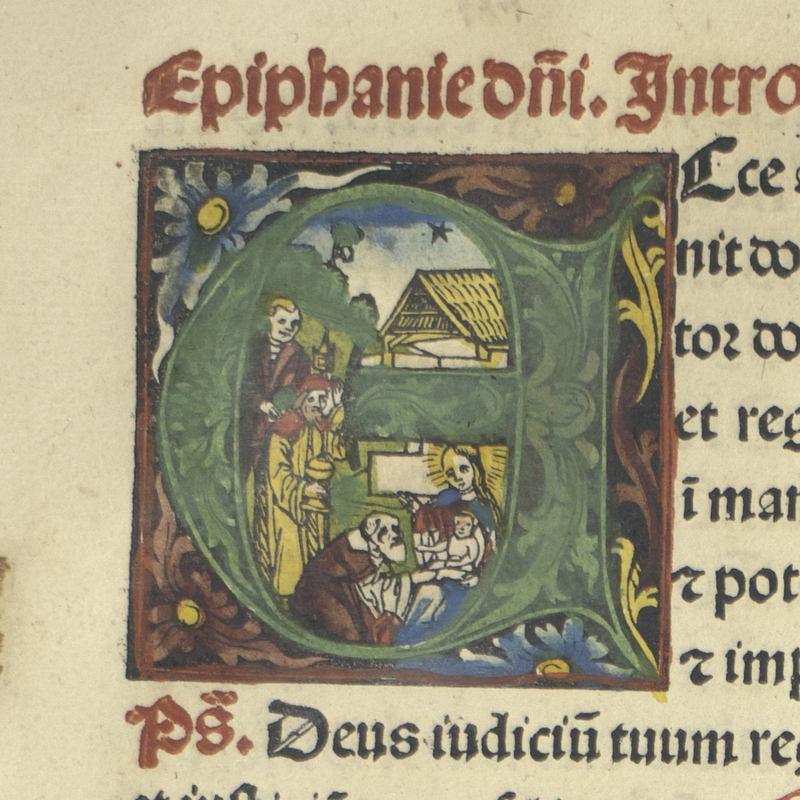 Epiphanie dn̄i. Intro
E Cce
nit do
tor do
et reg
ī man
⁊ pot
⁊ imp
Ps̄. Deus iudiciū tuum reg